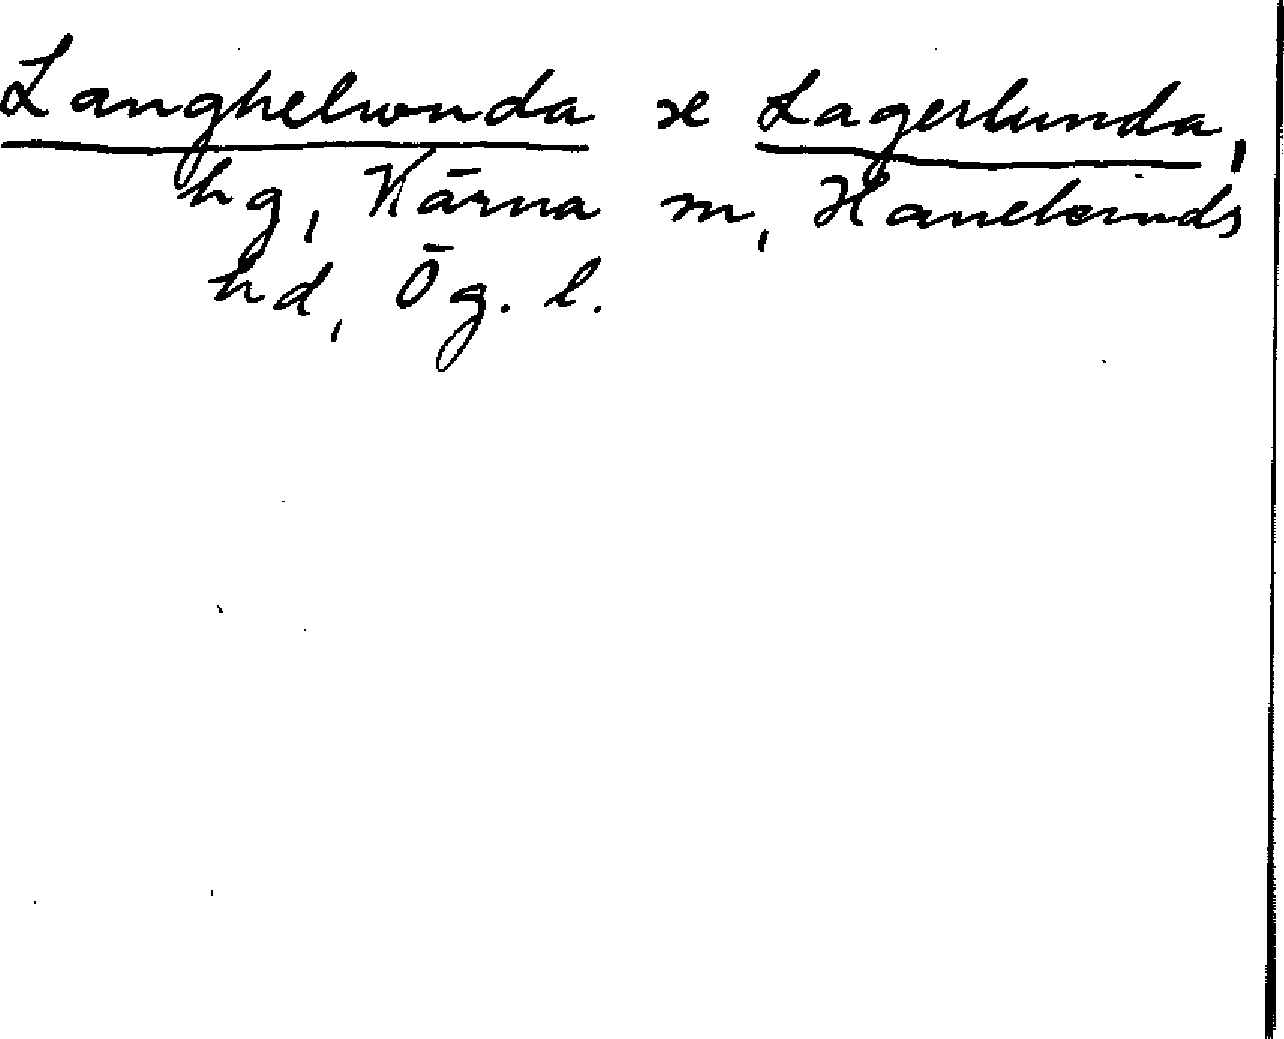 Langhelwnda se Lagerlunda,
hg, Kärna sn, Hanekinds
hd, Ög. l.